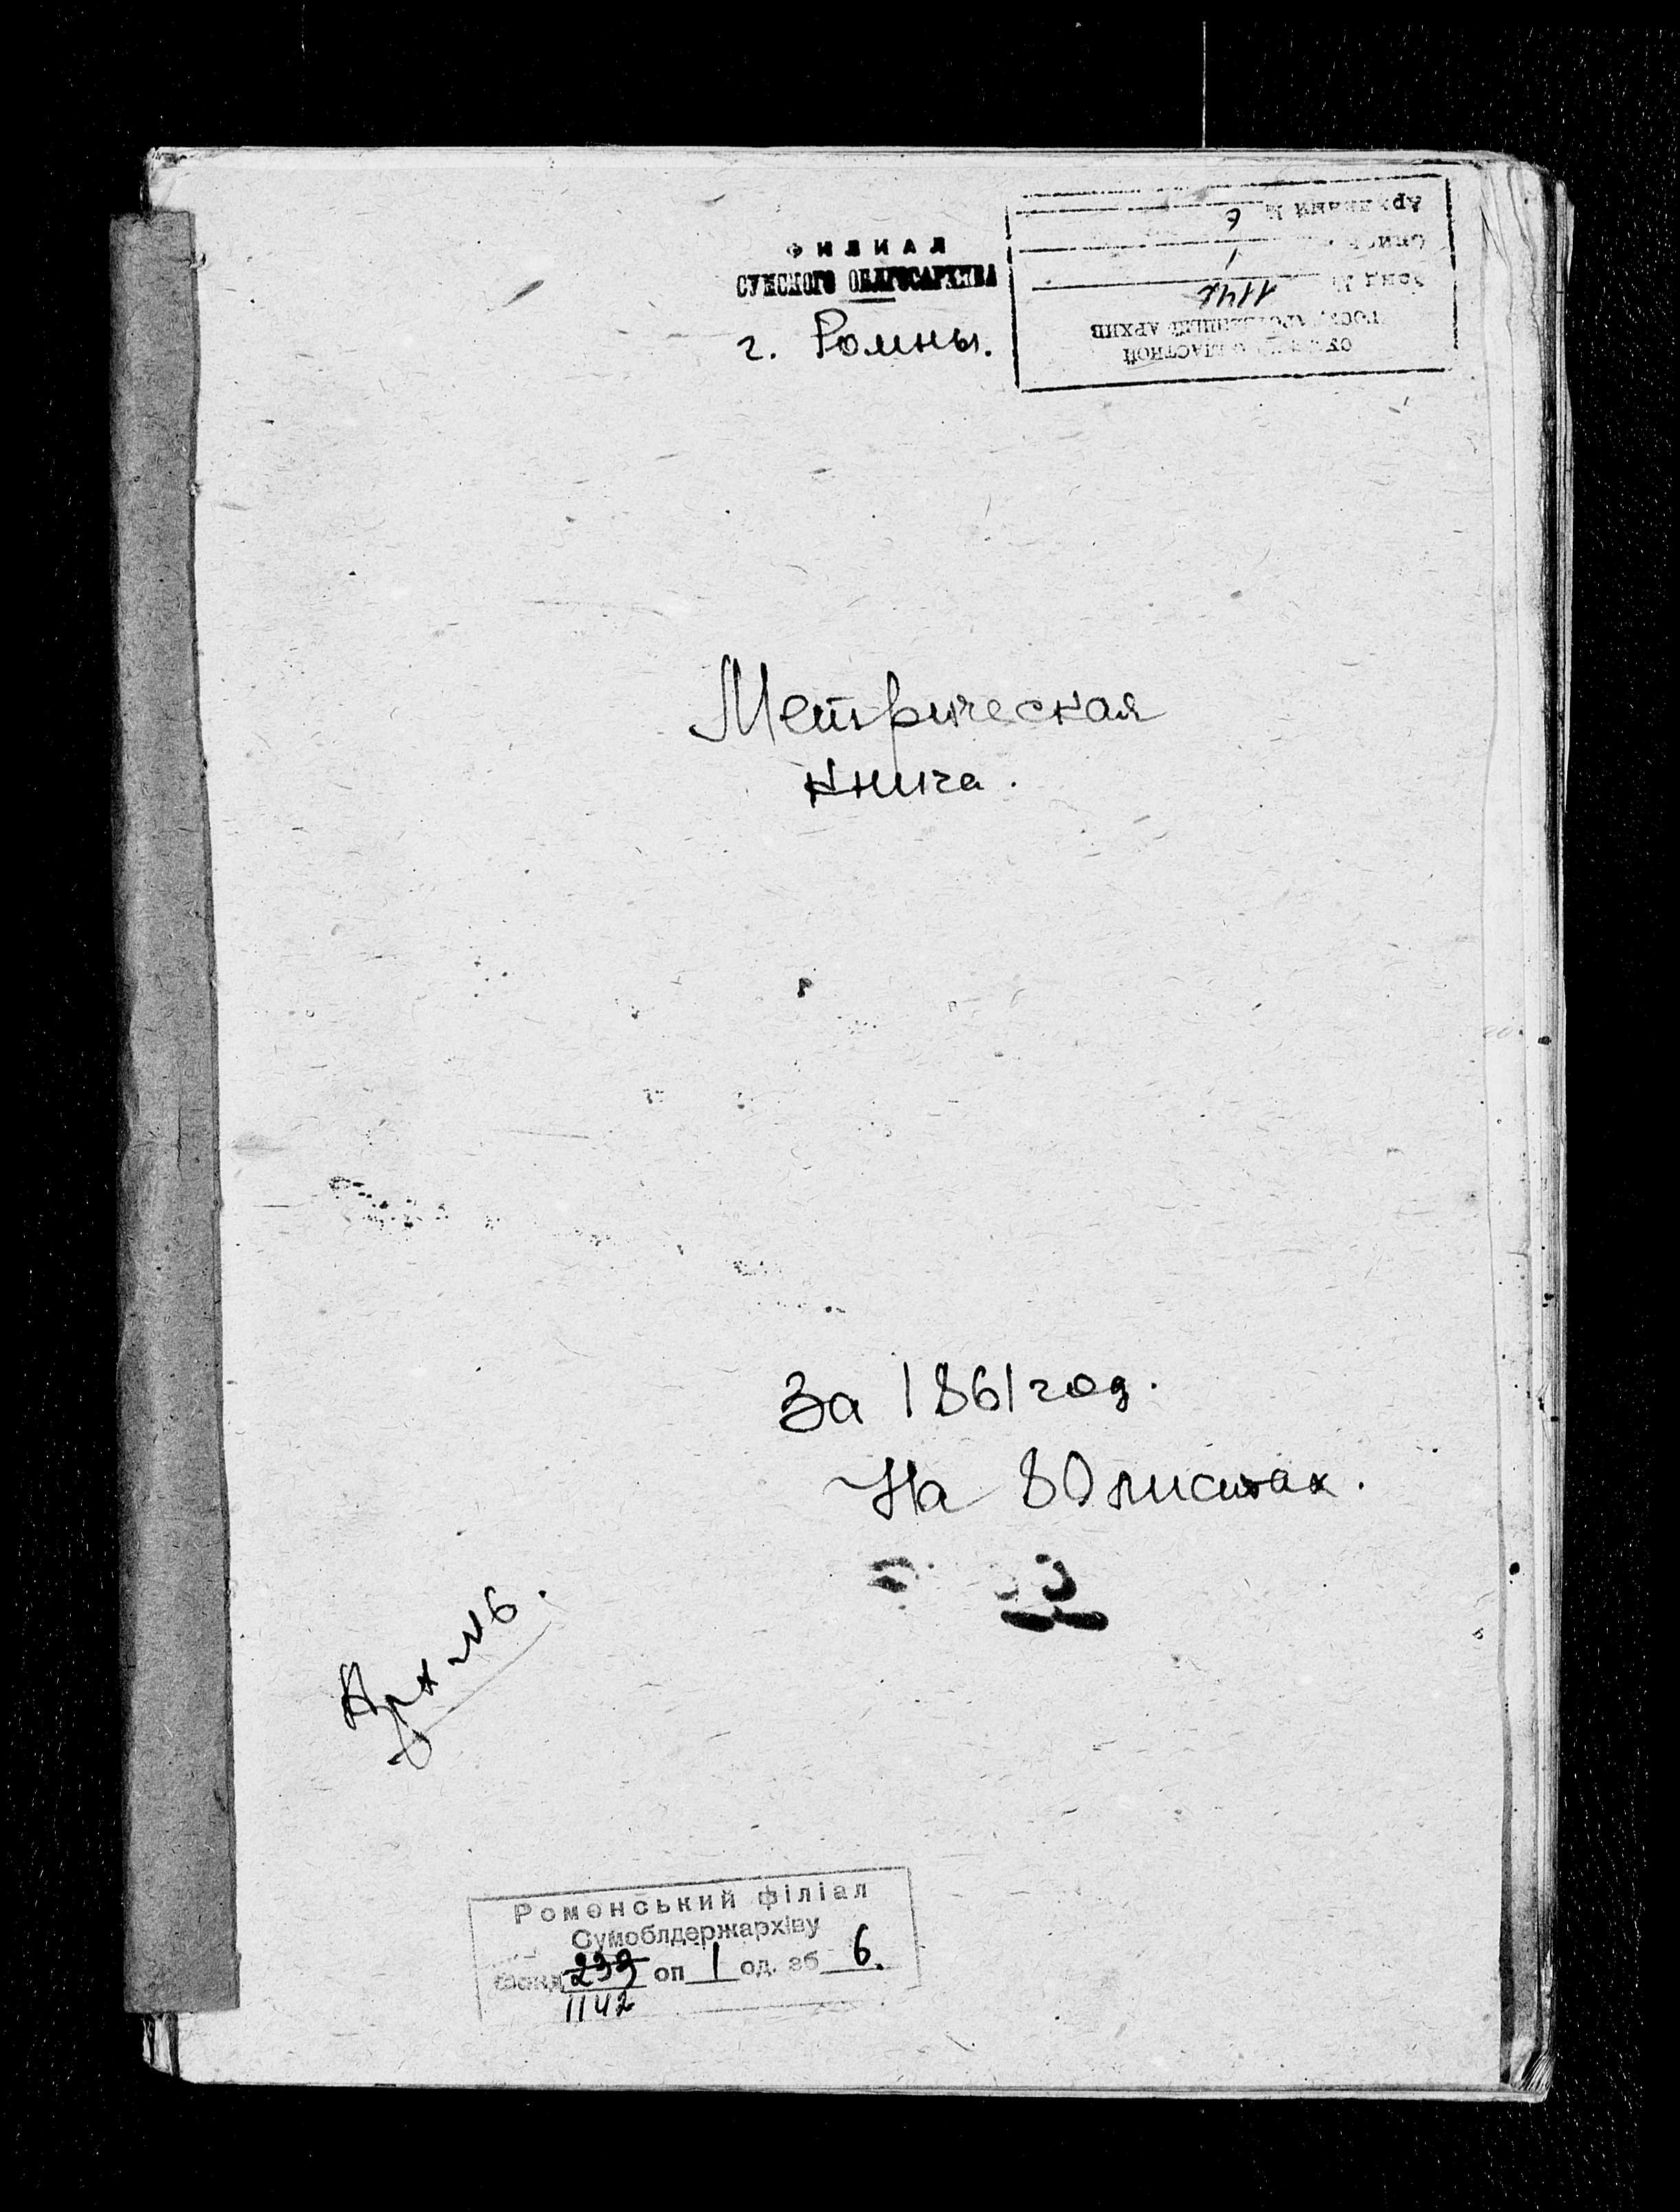 ФИЛИАЛ
СУМСКОГО ОБЛГОСАРХИВА
г. Ромны.
СУМСКОЙ ОБЛАСТНОЙ
ГОСУДАРСТВЕННЫЙ АРХИВ
Фонд № 1142
Опись № 1
Ар. единица № 6
Метрическая
книга.
За 1861 год.
На 80 листах.
Арх №6.
Роменський філіал
Сумоблдержархіву
Фонд 239 оп 1 од. зб 6.
1142